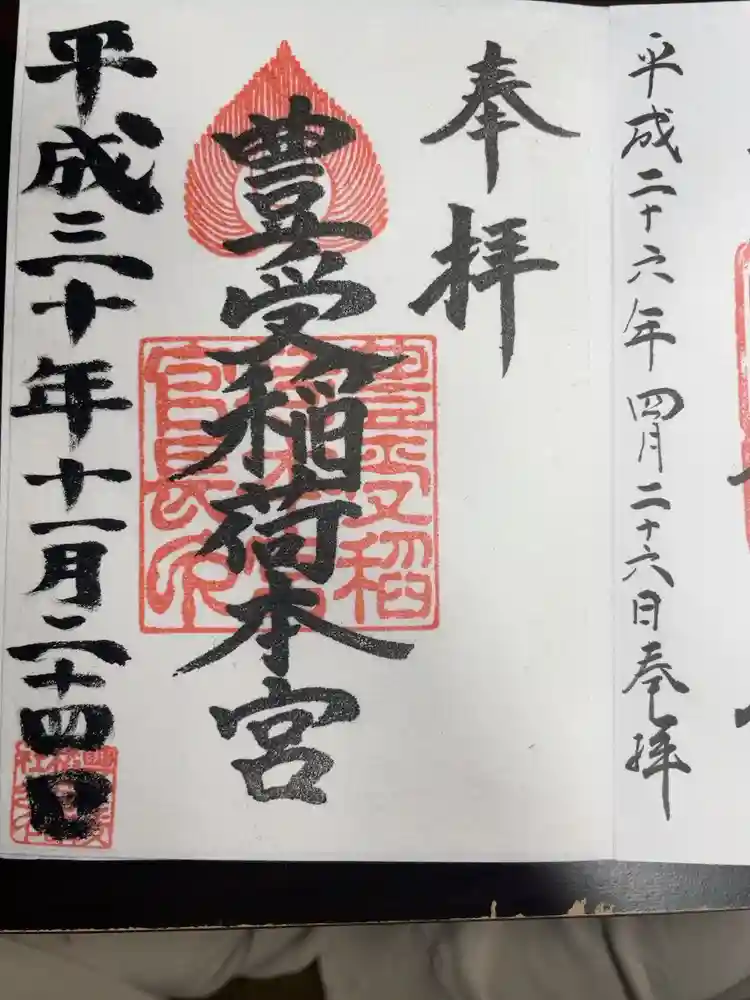 平成二十六年四月二十六日奉拝
奉拝
豊受稲荷本宮
平成三十年十一月二十四日